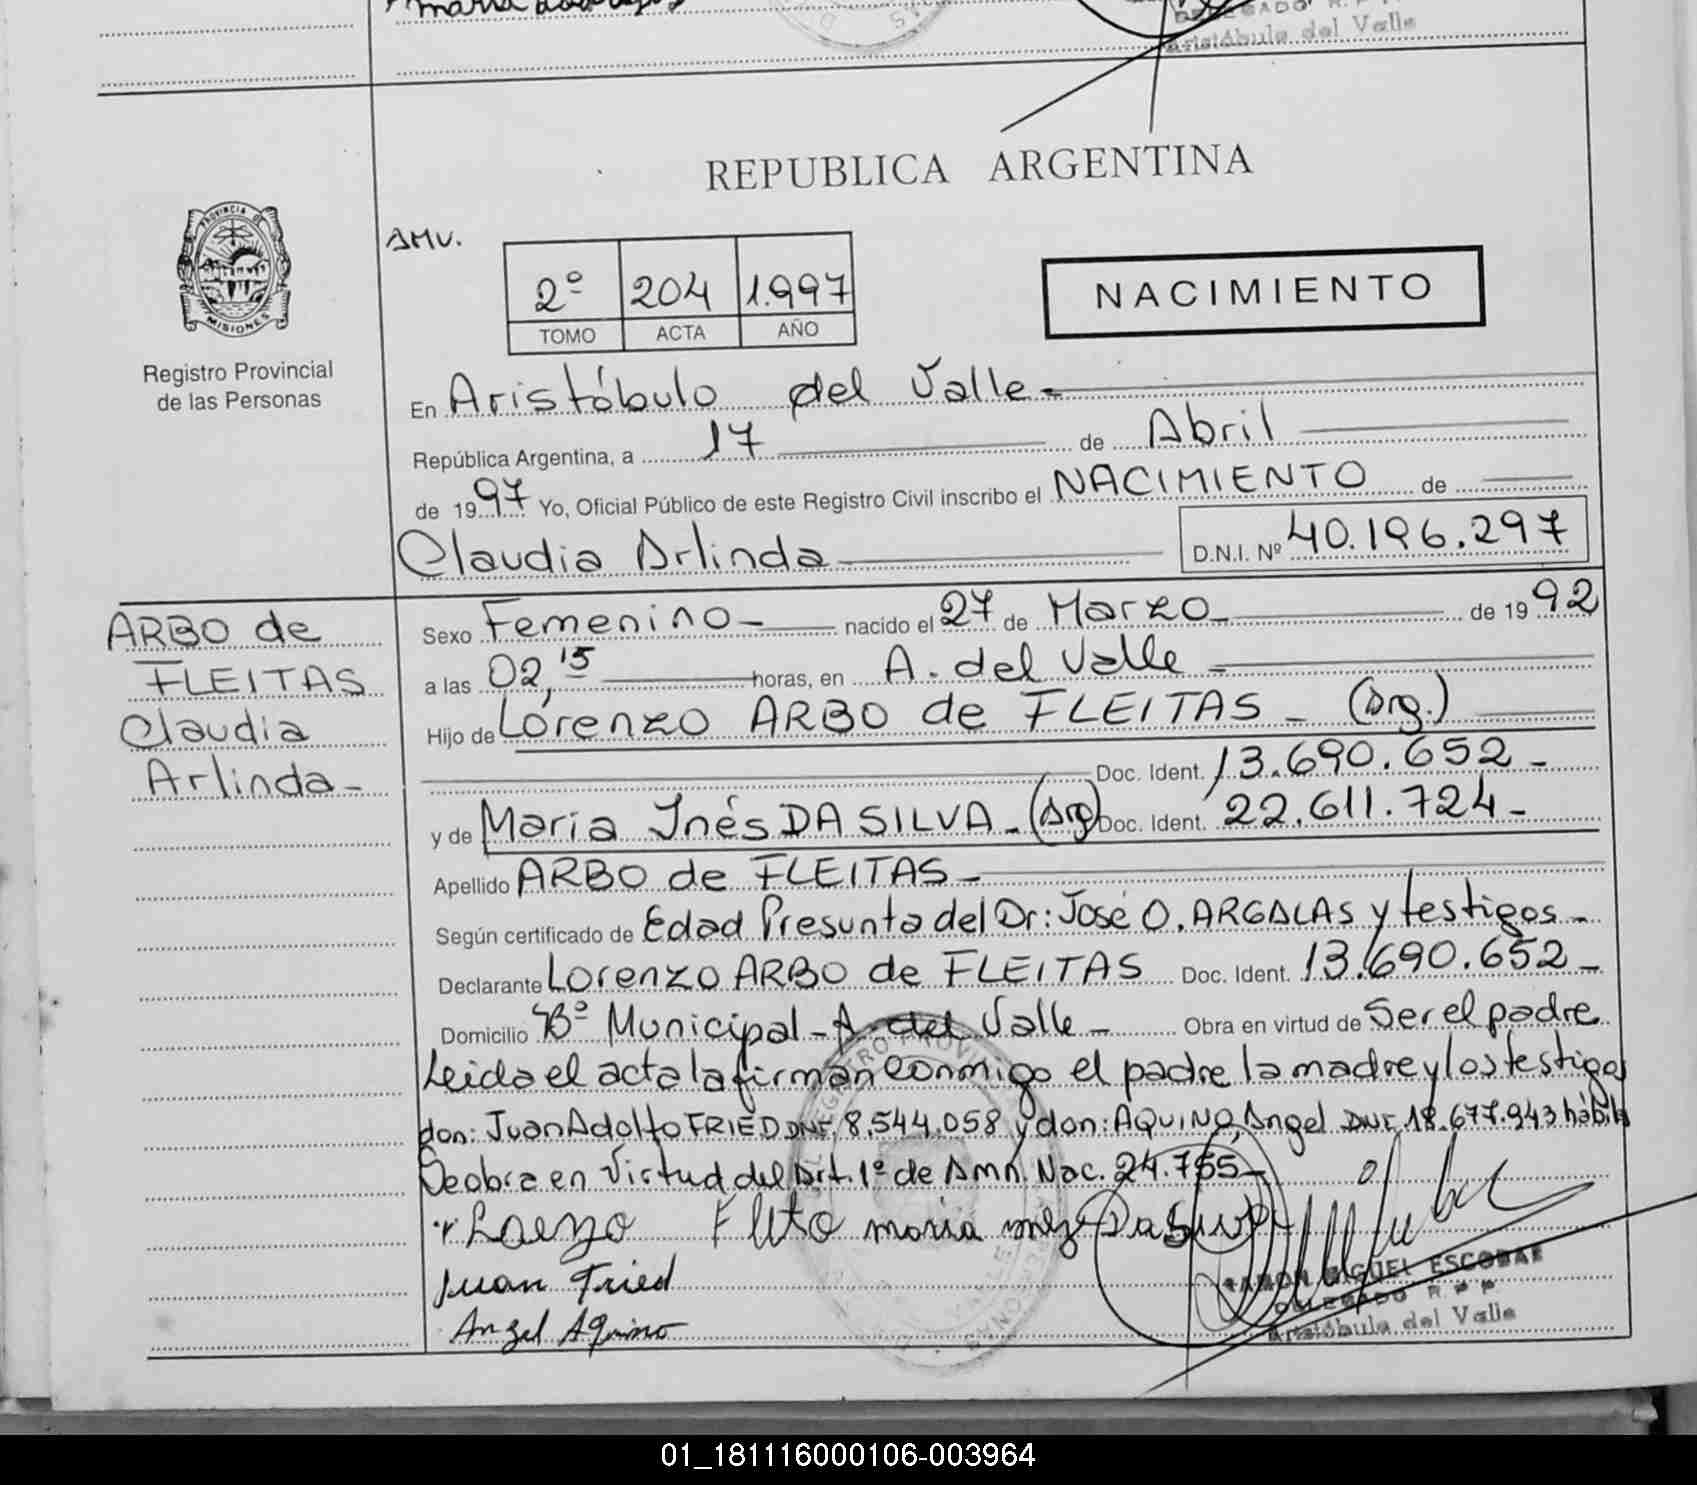 Aristóbulo del Valle
REPUBLICA ARGENTINA
PROVINCIA DE
MISIONES
Registro Provincial
de las Personas
AMV.
2º 204 1.997
TOMO ACTA AÑO
NACIMIENTO
En Aristóbulo del Valle-
República Argentina, a 17 de Abril
de 1997 Yo, Oficial Público de este Registro Civil inscribo el NACIMIENTO de
Claudia Arlinda D.N.I. Nº 40.196.297
ARBO de
FLEITAS
Claudia
Arlinda-
Sexo Femenino- nacido el 27 de Marzo- de 1992
a las 02,15 horas, en A. del Valle-
Hijo de Lorenzo ARBO de FLEITAS- (Arg.)
Doc. Ident. 13.690.652-
y de María Inés DA SILVA-(Arg) Doc. Ident. 22.611.724-
Apellido ARBO de FLEITAS-
Según certificado de Edad Presunta del Dr: José O. ARGALAS y testigos-
Declarante Lorenzo ARBO de FLEITAS Doc. Ident. 13.690.652-
Domicilio Bº Municipal-A. del Valle- Obra en virtud de Ser el padre
Leida el acta la firman conmigo el padre la madre y los testigos
don: Juan Adolfo FRIED DNI. 8.544.058 y don: AQUINO, Angel DNI. 18.677.943 hábils
Se obra en Virtud del Art. 1º de Amn. Nac. 24.755-
Loenzo Fleto maria inez Da Silva
Juan Fried
Angel Aquino
RAMON MIGUEL ESCOBAR
DELEGADO R. P. P.
Aristóbulo del Valle
01_181116000106-003964